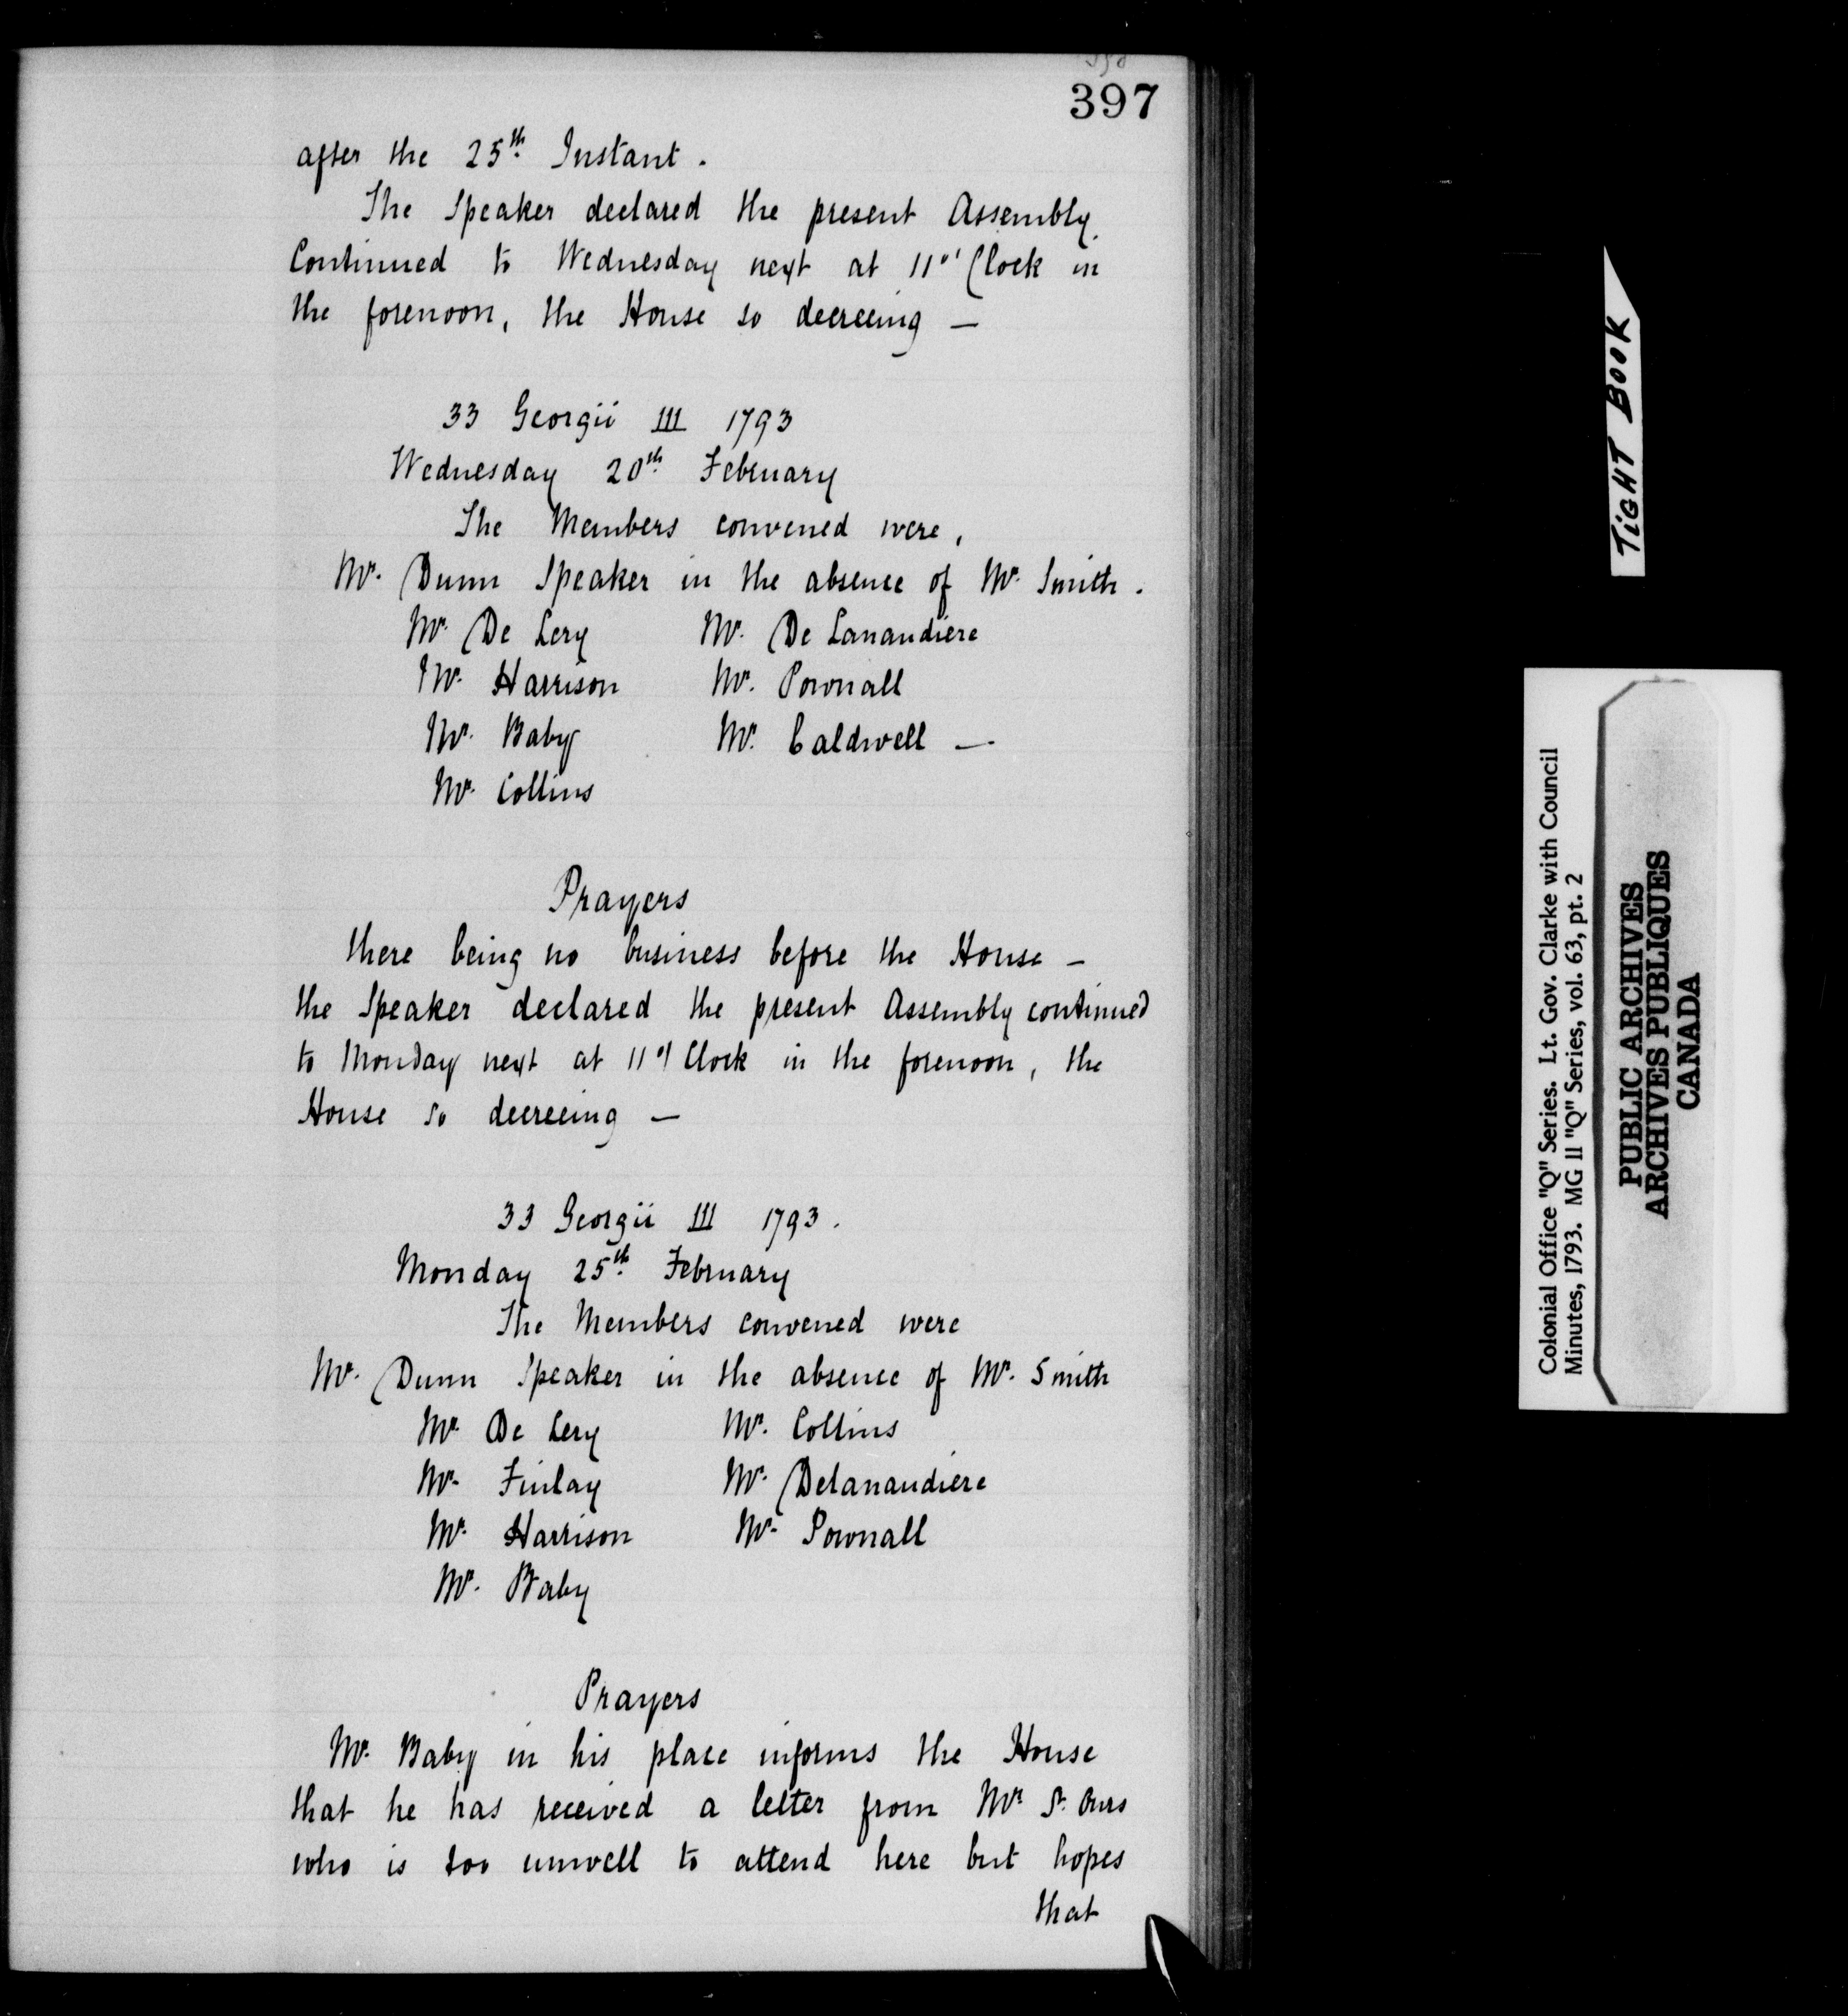 397
after the 25th Instant.
The Speaker declared the present Assembly
Continued to Wednesday next at 11 o'Clock in
the forenoon, the House so decreeing —
33 Georgii III 1793
Wednesday 20th February
The Members convened were,
Mr. Dunn Speaker in the absence of Mr. Smith.
Mr. De Lery Mr. De Lanaudiere
Mr. Harrison Mr. Pownall
Mr. Baby Mr. Caldwell —
Mr. Collins
Prayers
there being no business before the House –
the Speaker declared the present Assembly continued
to Monday next at 11 o'Clock in the forenoon, the
House so decreeing —
33 Georgii III 1793.
Monday 25th February
The Members convened were
Mr. Dunn Speaker in the absence of Mr. Smith
Mr. De Lery Mr. Collins
Mr. Finlay Mr. Delanaudiere
Mr. Harrison Mr. Pownall
Mr. Baby
Prayers
Mr. Baby in his place informs the House
that he has received a letter from Mr St. Ours
who is too unwell to attend here but hopes
that
TIGHT BOOK
Colonial Office "Q" Series. Lt. Gov. Clarke with Council
Minutes, 1793. MG 11 "Q" Series, vol. 63, pt. 2
PUBLIC ARCHIVES
ARCHIVES PUBLIQUES
CANADA